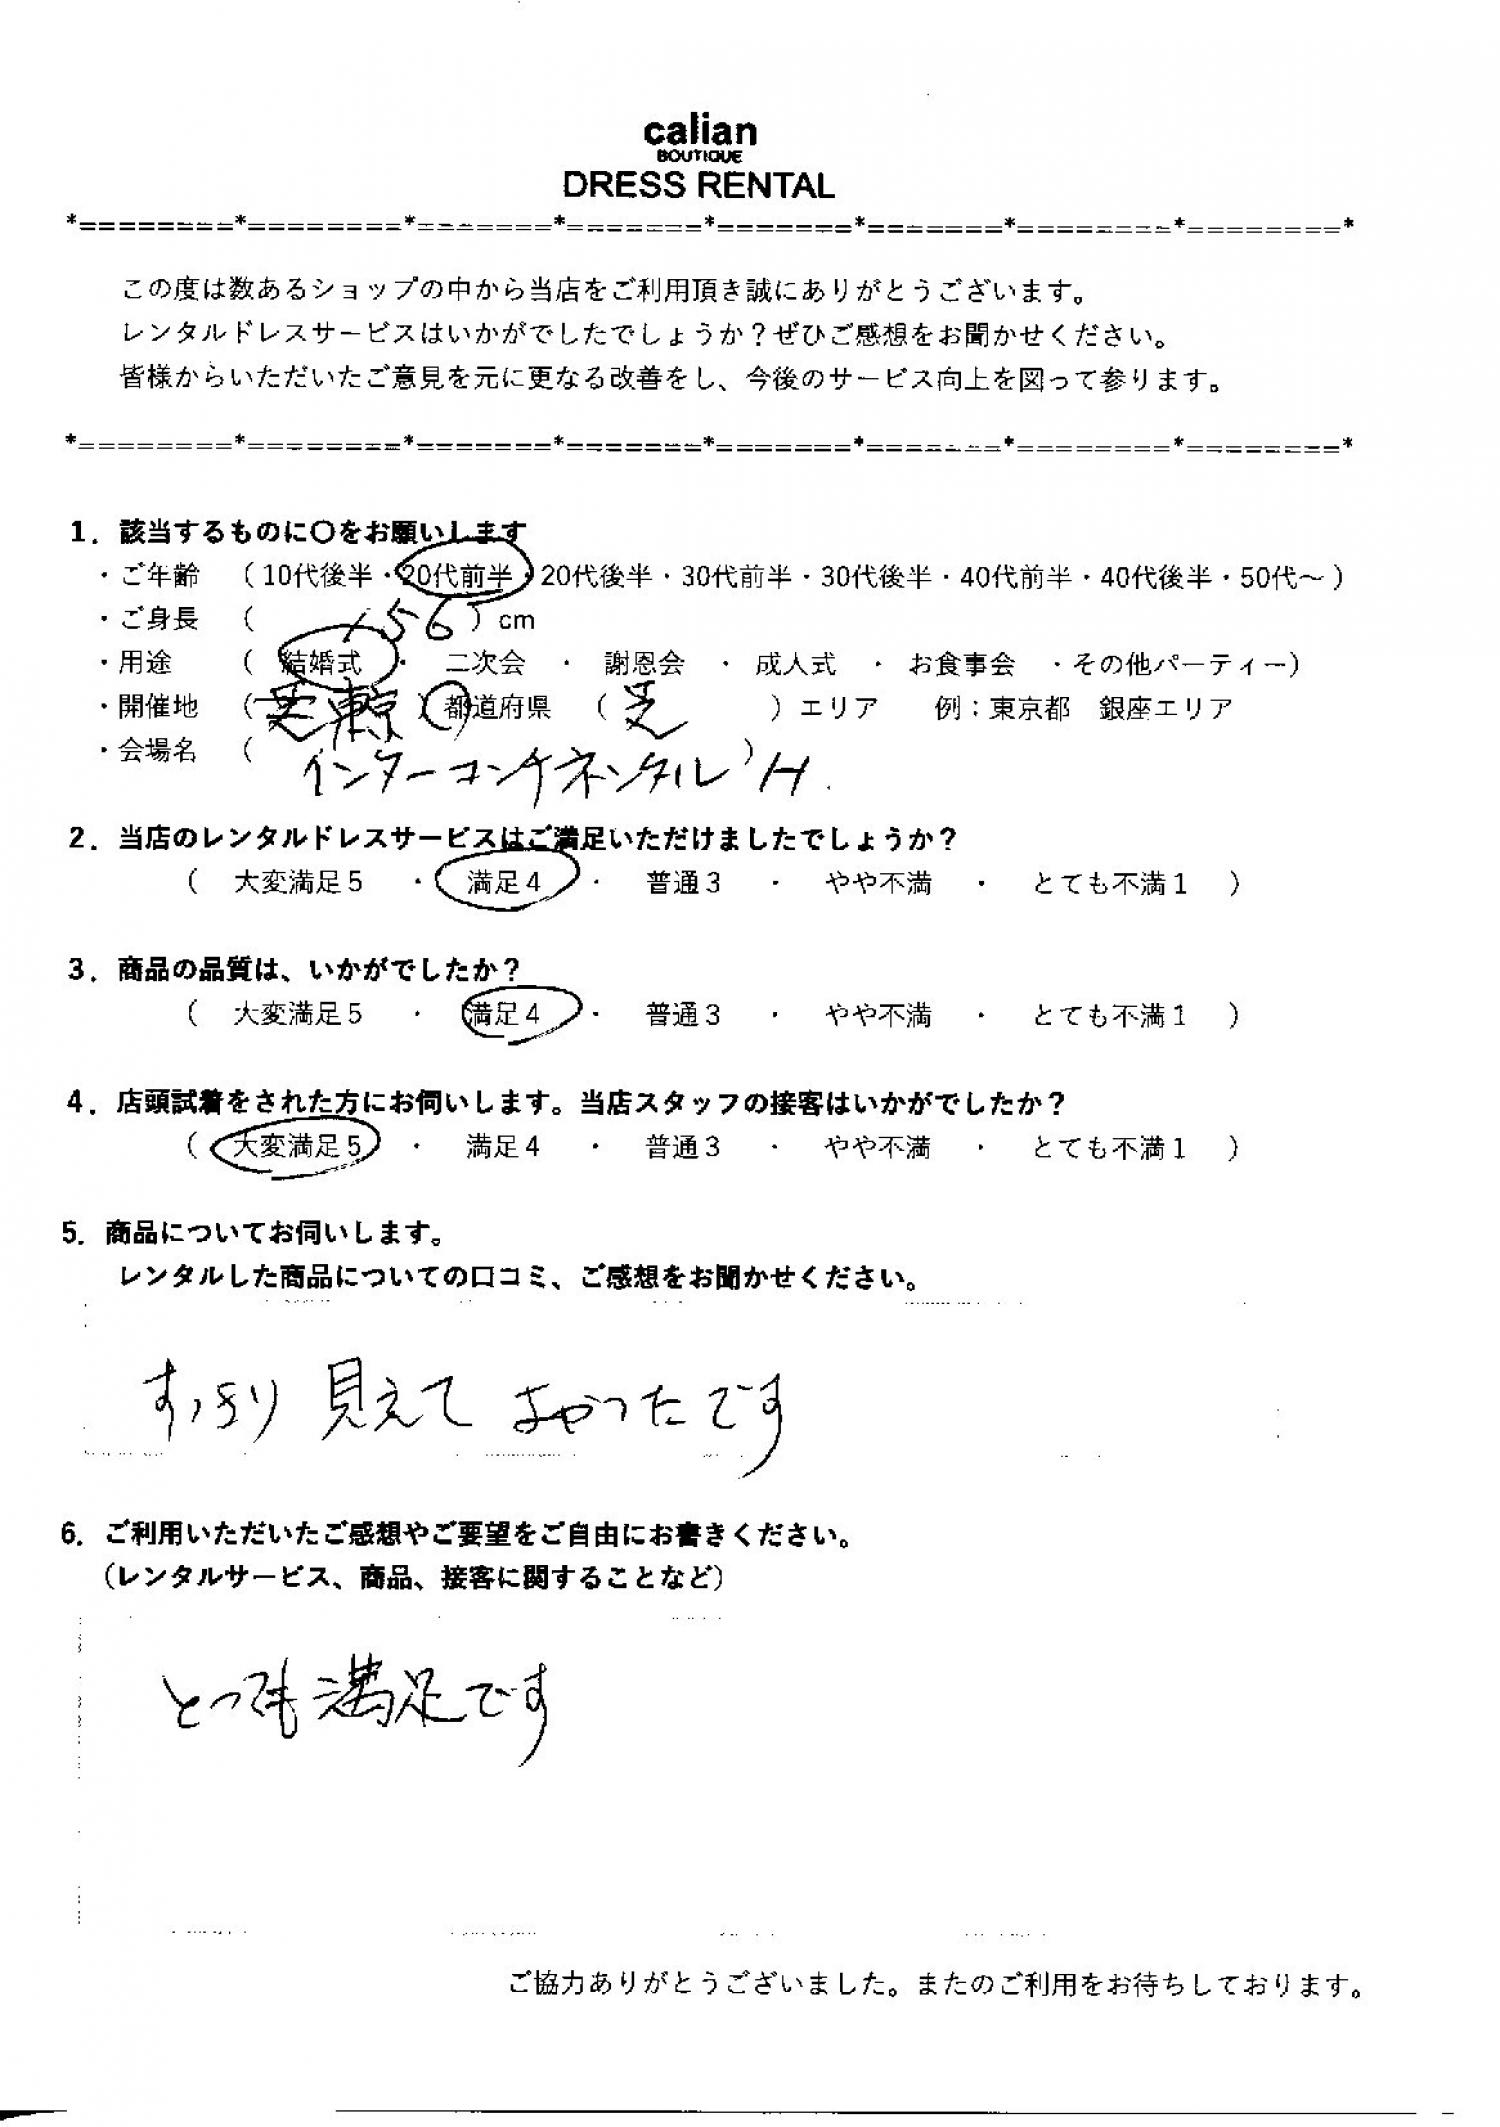 calian
BOUTIQUE
DRESS RENTAL
*========*========*=======*=======*=======*=======*========*========*
この度は数あるショップの中から当店をご利用頂き誠にありがとうございます。
レンタルドレスサービスはいかがでしたでしょうか？ぜひご感想をお聞かせください。
皆様からいただいたご意見を元に更なる改善をし、今後のサービス向上を図って参ります。
*========*========*=======*=======*=======*=======*========*========*
1．該当するものに〇をお願いします
・ご年齢 （10代後半・20代前半・20代後半・30代前半・30代後半・40代前半・40代後半・50代～）
・ご身長 （ 156 ）cm
・用途 （ 結婚式 ・ 二次会 ・ 謝恩会 ・ 成人式 ・ お食事会 ・その他パーティー）
・開催地 （ 東京 ）都道府県 （ 芝 ）エリア 例：東京都 銀座エリア
・会場名 （ インターコンチネンタル ）H.
2．当店のレンタルドレスサービスはご満足いただけましたでしょうか？
（ 大変満足５ ・ 満足４ ・ 普通３ ・ やや不満 ・ とても不満１ ）
3．商品の品質は、いかがでしたか？
（ 大変満足５ ・ 満足４ ・ 普通３ ・ やや不満 ・ とても不満１ ）
4．店頭試着をされた方にお伺いします。当店スタッフの接客はいかがでしたか？
（ 大変満足５ ・ 満足４ ・ 普通３ ・ やや不満 ・ とても不満１ ）
5．商品についてお伺いします。
レンタルした商品についての口コミ、ご感想をお聞かせください。
すっきり見えてよかったです
6．ご利用いただいたご感想やご要望をご自由にお書きください。
（レンタルサービス、商品、接客に関することなど）
とっても満足です
ご協力ありがとうございました。またのご利用をお待ちしております。